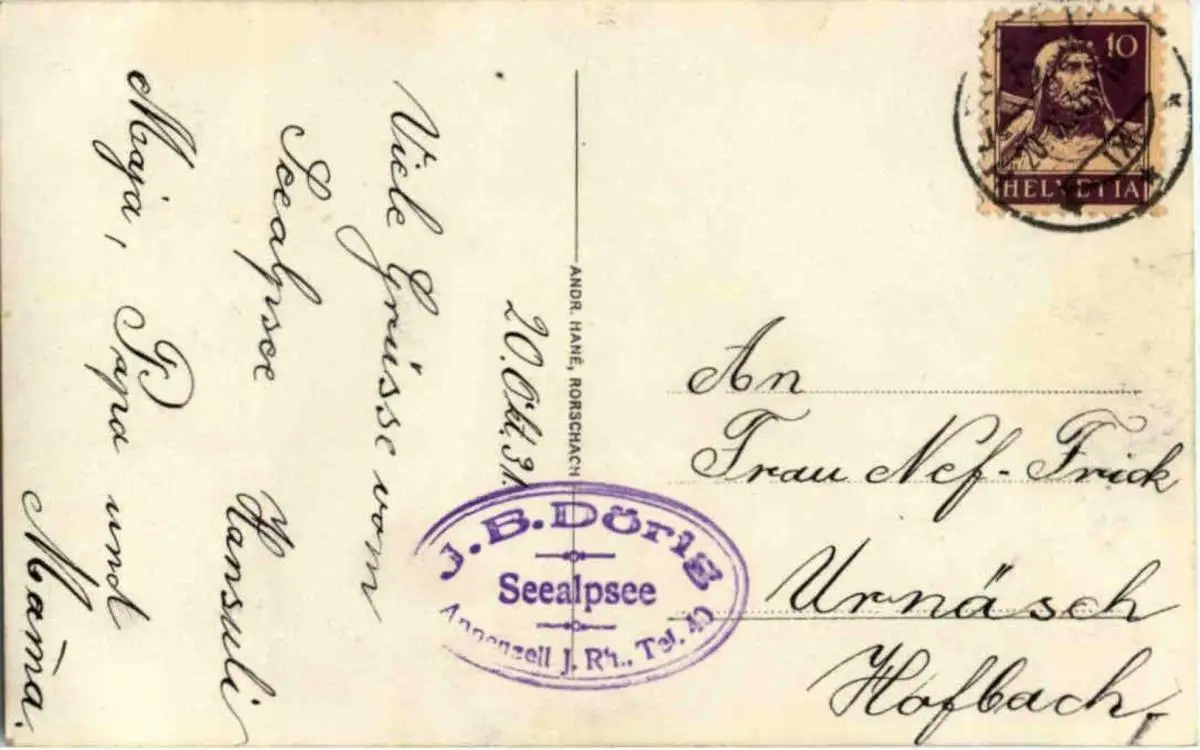 20. Okt. 31.
Viele Grüsse vom
Seealpsee Hansuli
Maja, Papa und
Mama.
ANDR. HANÉ, RORSCHACH
J. B. Dörig
Seealpsee
Appenzell J. Rh., Tel. 40
10
HELVETIA
20. X
An
Frau Nef-Frick
Urnäsch
Hofbach.